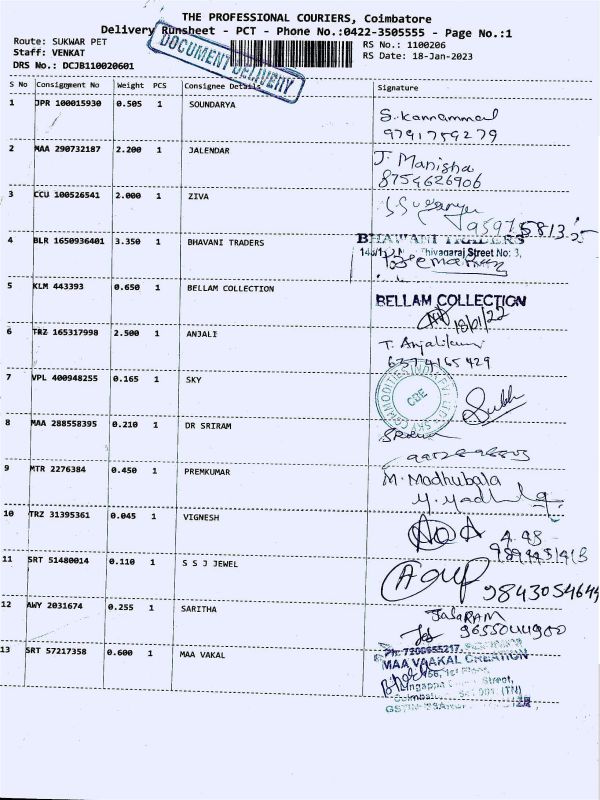 THE PROFESSIONAL COURIERS, Coimbatore
Delivery Runsheet - PCT - Phone No.:0422-3505555 - Page No.:1
Route: SUKWAR PET
RS No.: 1100206
Staff: VENKAT
RS Date: 18-Jan-2023
DRS No.: DCJB110020601
DOCUMENT DELIVERY
S No Consignment No Weight PCS Consignee Details Signature
1 JPR 100015930 0.505 1 SOUNDARYA
S. Kannammal
9791759279
2 MAA 290732187 2.200 1 JALENDAR
J. Manisha
8754626906
3 CCU 100526541 2.000 1 ZIVA
4 BLR 1650936401 3.350 1 BHAVANI TRADERS
BHAWANI TRADERS
Thivagaraj Street No: 3,
5 KLM 443393 0.650 1 BELLAM COLLECTION
BELLAM COLLECTION
6 TRZ 165317998 2.500 1 ANJALI
7 VPL 400948255 0.165 1 SKY
SKY COMMODITIES INDIA PVT LTD
CBE
8 MAA 288558395 0.210 1 DR SRIRAM
9 MTR 2276384 0.450 1 PREMKUMAR
M. Madhubala
10 TRZ 31395361 0.045 1 VIGNESH
11 SRT 51480014 0.110 1 S S J JEWEL
12 AWY 2031674 0.255 1 SARITHA
JalaRAM
13 SRT 57217358 0.600 1 MAA VAKAL
MAA VAAKAL CREATION
Street,